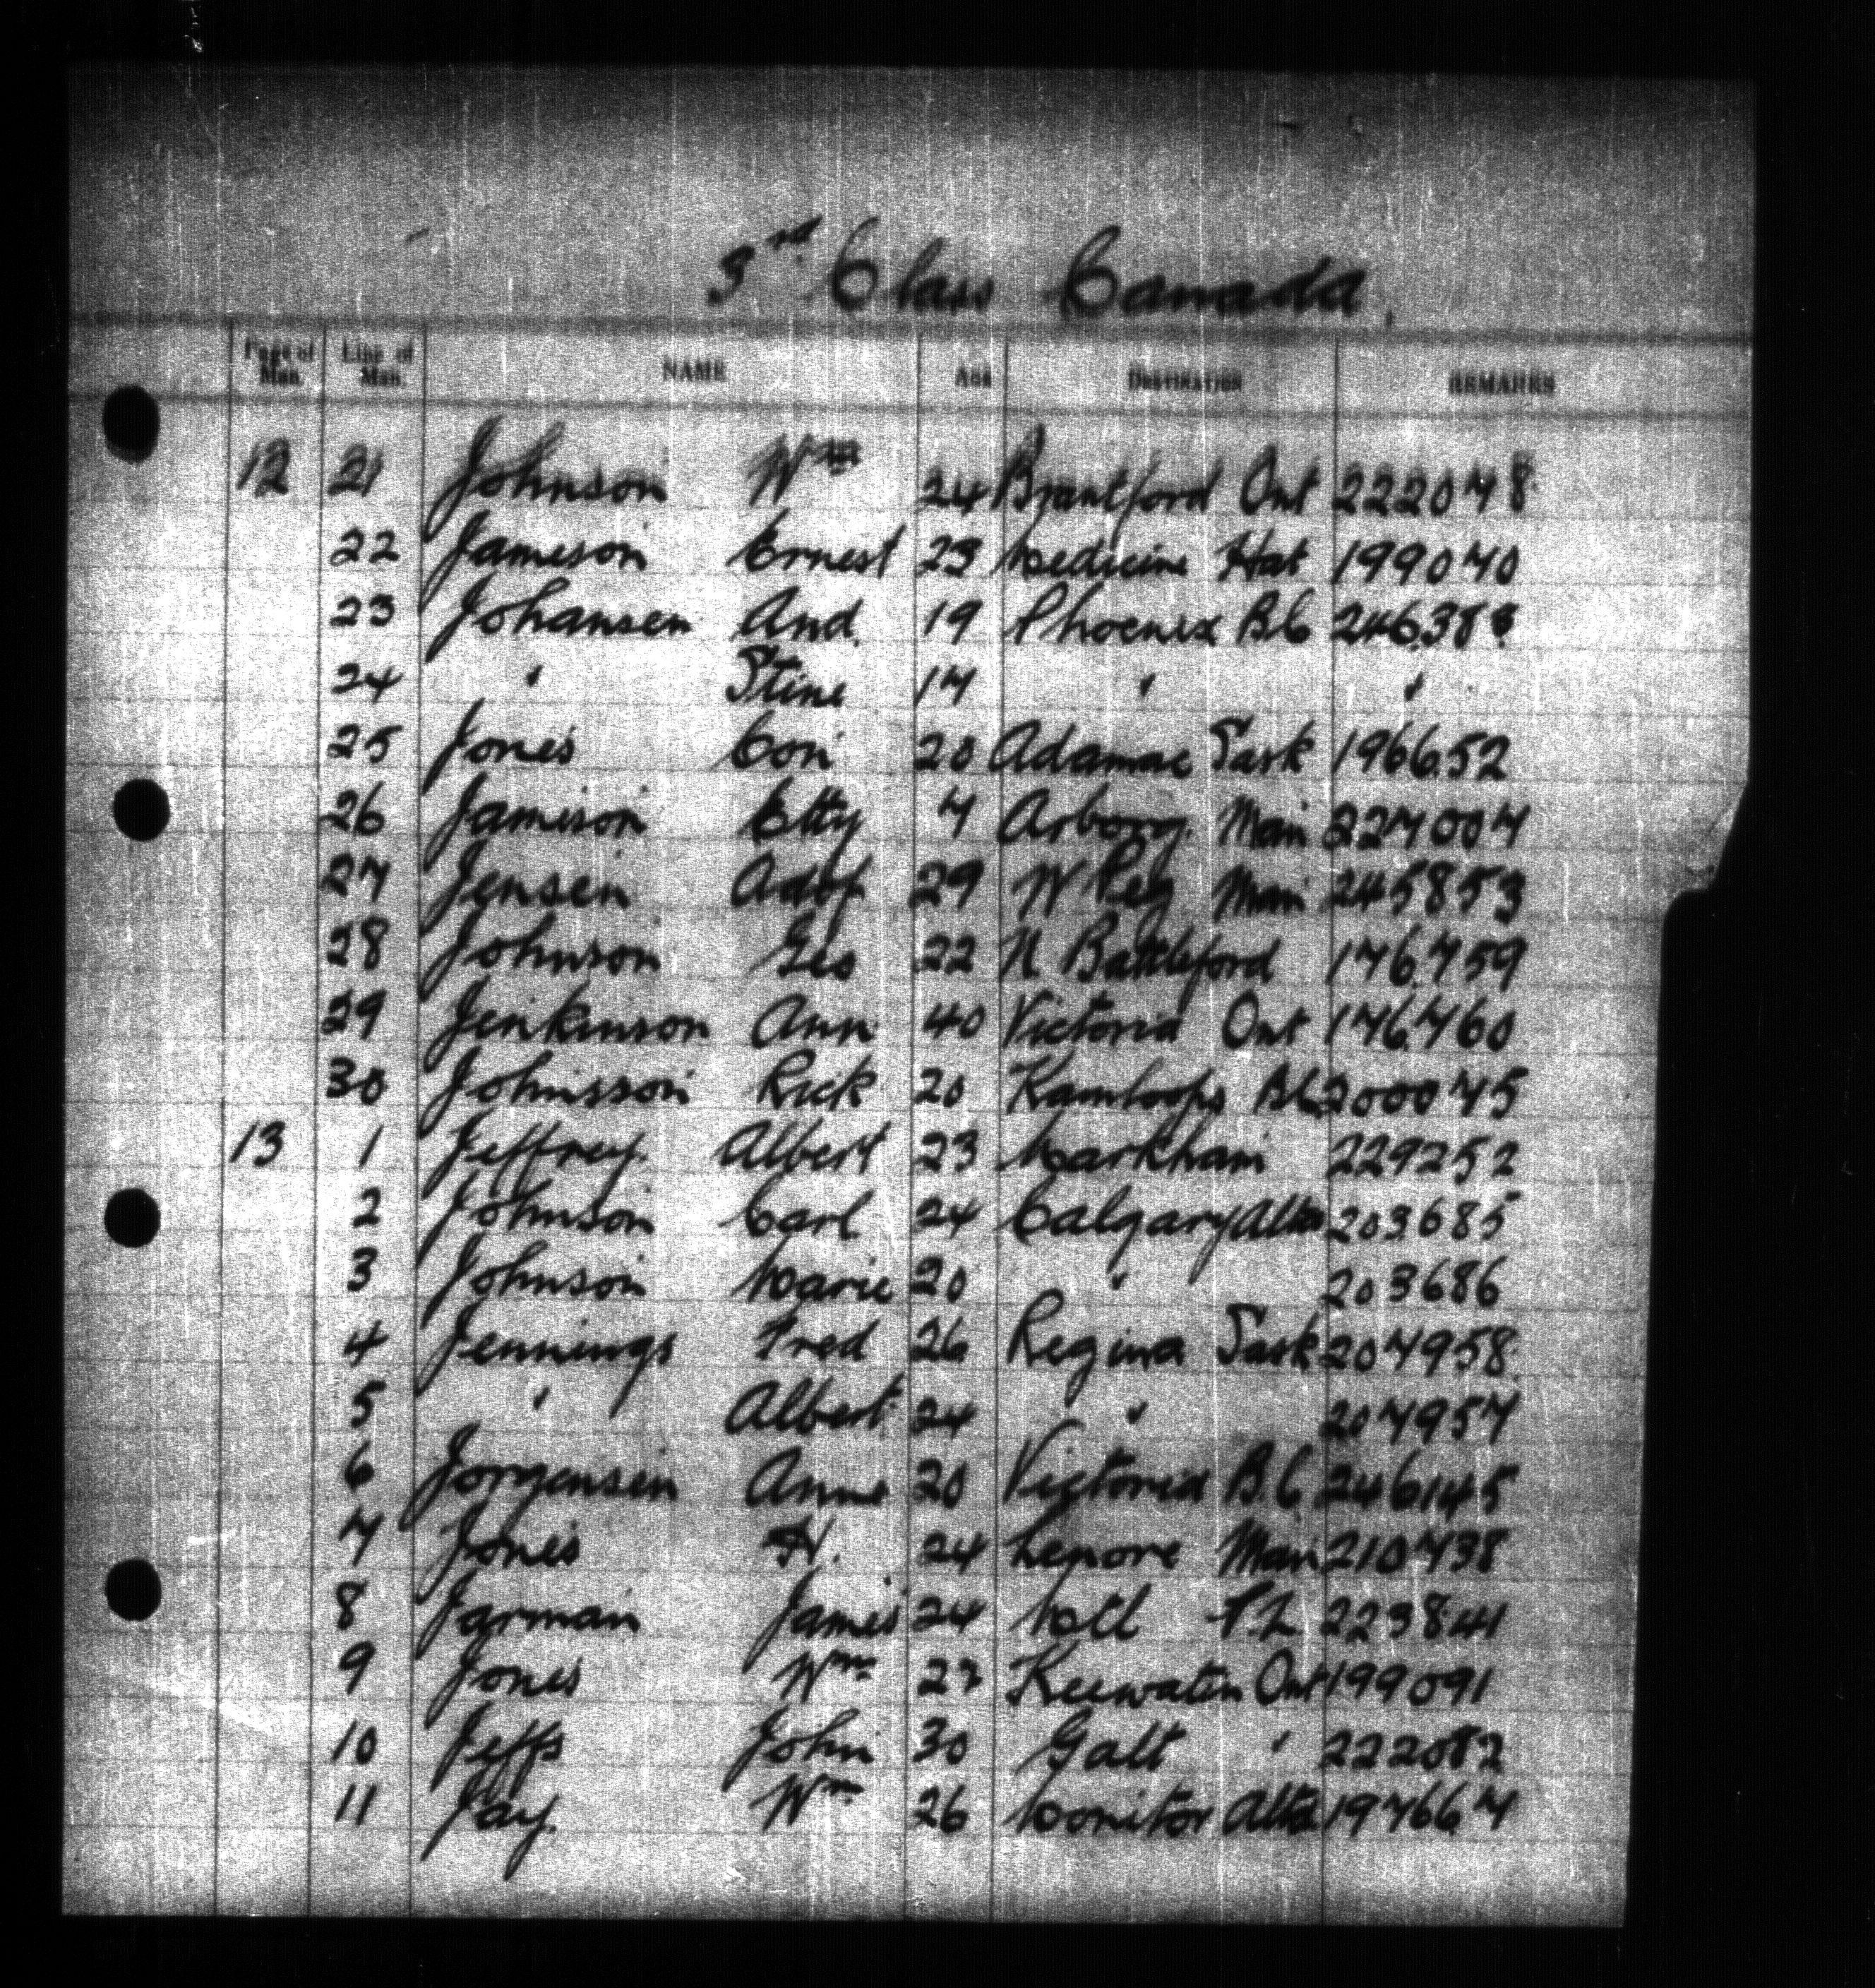 3rd Class Canada.
Page of Man. Line of Man. NAME AGE DESTINATION REMARKS
12 21 Johnson Wm 24 Brantford Ont 222078
22 Jameson Ernest 23 Medicine Hat 199070
23 Johansen And. 19 Phoenix B.C 246388
24 " Stine 17 " "
25 Jones Con 20 Adamac Sask 196652
26 Jameson Etty 7 Arborg. Man 227007
27 Jensen Adof 29 WPeg Man 245853
28 Johnson Geo 22 N Battleford 176759
29 Jenkinson Ann 40 Victoria Ont 176760
30 Johnsson Rick 20 Kamloops B.C 200075
13 1 Jeffrey. Albert 23 Markham 229252
2 Johnson Carl 24 Calgary Alta 203685
3 Johnson Marie 20 " 203686
4 Jennings Fred 26 Regina Sask 207958
5 " Albert 24 " 207957
6 Jorgensen Anna 20 Victoria B.C 246145
7 Jones H. 24 Lenore Man 210738
8 Jarman James 24 Mtl 223841
9 Jones Wm Keewatin Ont 199091
10 Jeffs John 30 Galt " 222082
11 Jay. Wm 26 Monitor Alta 197667